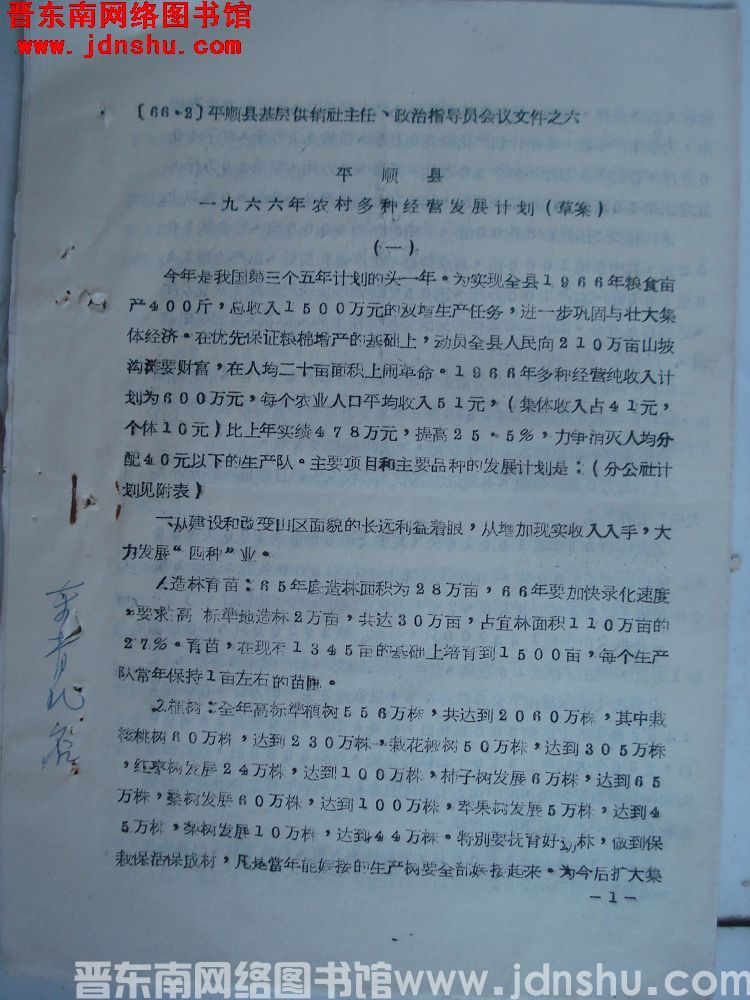 晋东南网络图书馆
www.jdnshu.com
〔66·2〕平顺县基层供销社主任、政治指导员会议文件之六
平顺县
一九六六年农村多种经营发展计划(草案)
(一)
今年是我国第三个五年计划的头一年。为实现全县1966年粮食亩
产400斤,总收入1500万元的双增生产任务,进一步巩固与壮大集
体经济。在优先保证粮棉增产的基础上,动员全县人民向210万亩山坡
沟滩要财富,在人均二十亩面积上闹革命。1966年多种经营纯收入计
划为600万元,每个农业人口平均收入51元,(集体收入占41元,
个体10元)比上年实绩478万元,提高25.5%,力争消灭人均分
配40元以下的生产队。主要项目和主要品种的发展计划是:(分公社计
划见附表)
一、从建设和改变山区面貌的长远利益着眼,从增加现实收入入手,大
力发展“四种”业。
1.造林育苗:65年底造林面积为28万亩,66年要加快录化速度
,要求高标准地造林2万亩,共达30万亩,占宜林面积110万亩的
27%。育苗,在现有1345亩的基础上培育到1500亩,每个生产
队常年保持1亩左右的苗圃。
2.植树:全年高标准植树556万株,共达到2060万株,其中栽
核桃树60万株,达到230万株,栽花椒树50万株,达到305万株
,红枣树发展24万株,达到100万株,柿子树发展6万株,达到65
万株,桑树发展60万株,达到100万株,苹果树发展5万株,达到4
5万株,梨树发展10万株,达到44万株。特别要抚育好幼林,做到保
栽保活保成材,凡是当年能嫁接的生产树要全部嫁接起来。为今后扩大集
-1-
晋东南网络图书馆www.jdnshu.com